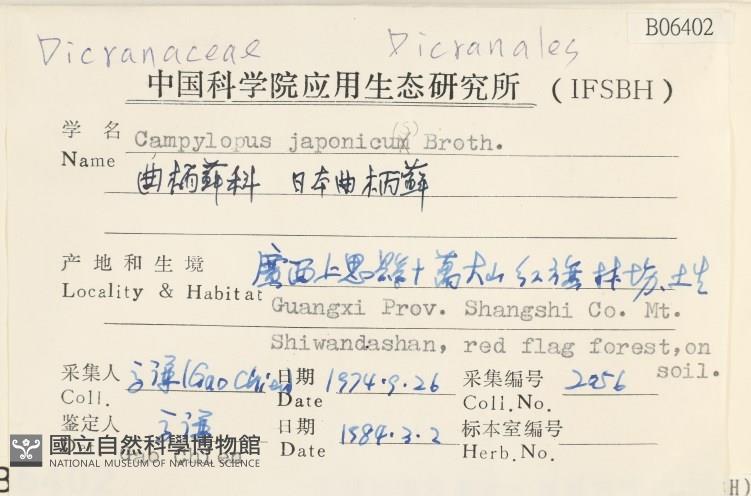 B06402
Dicranaceae Dicranales
中国科学院应用生态研究所 (IFSBH)
学名 Campylopus japonicum(s) Broth.
Name
曲柄蘚科 日本曲柄蘚
产地和生境 廣西上思縣十萬大山红旗林场、土生
Locality & Habitat Guangxi Prov. Shangshi Co. Mt.
Shiwandashan, red flag forest, on
soil.
采集人 高谦(Gao Chien) 日期 1974.9.26 采集编号 2056
Coll. Date Coll.No.
鉴定人 高谦 日期 1984.3.2 标本室编号
Gao Chien Date Herb.No.
國立自然科學博物館
NATIONAL MUSEUM OF NATURAL SCIENCE